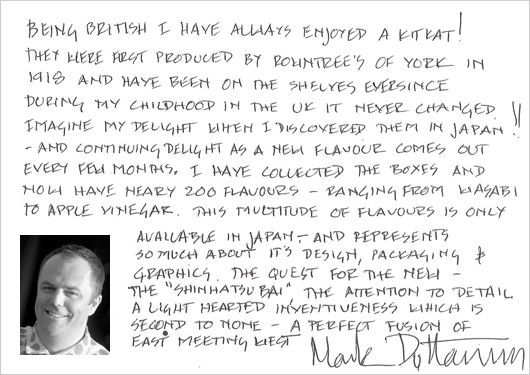 BEING BRITISH I HAVE ALWAYS ENJOYED A KITKAT!
THEY WERE FIRST PRODUCED BY ROWNTREE'S OF YORK IN
1918 AND HAVE BEEN ON THE SHELVES EVERSINCE
DURING MY CHILDHOOD IN THE UK IT NEVER CHANGED.
IMAGINE MY DELIGHT WHEN I DISCOVERED THEM IN JAPAN!!
- AND CONTINUING DELIGHT AS A NEW FLAVOUR COMES OUT
EVERY FEW MONTHS. I HAVE COLLECTED THE BOXES AND
NOW HAVE NEARY 200 FLAVOURS - RANGING FROM WASABI
TO APPLE VINEGAR. THIS MULTITUDE OF FLAVOURS IS ONLY
AVAILABLE IN JAPAN - AND REPRESENTS
SO MUCH ABOUT IT'S DESIGN, PACKAGING &
GRAPHICS. THE QUEST FOR THE NEW -
THE "SHINHATSUBAI" THE ATTENTION TO DETAIL
A LIGHT HEARTED INVENTIVENESS WHICH IS
SECOND TO NONE - A PERFECT FUSION OF
EAST MEETING WEST
Mark